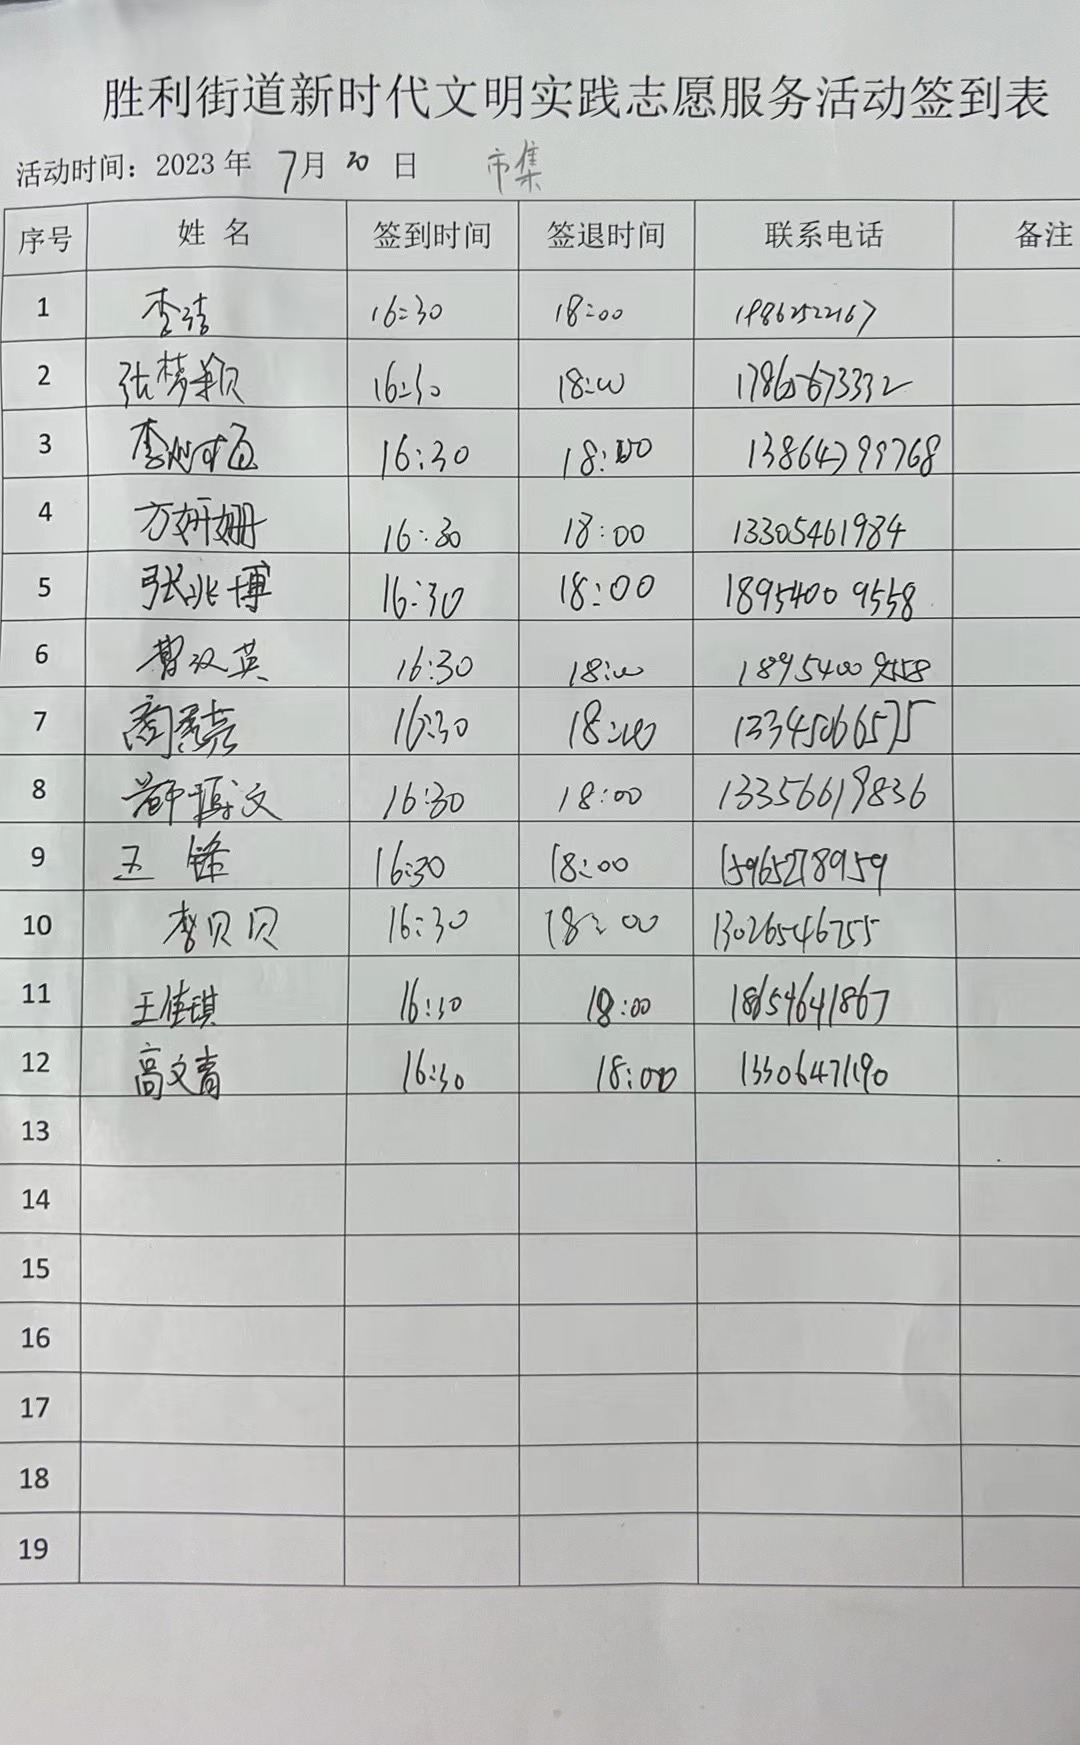 胜利街道新时代文明实践志愿服务活动签到表
活动时间：2023 年 7月 20 日 市集
序号 姓 名 签到时间 签退时间 联系电话 备注
1 李洁 16:30 18:00
2 张梦颖 16:30 18:00 17865673332
3 李 16:30 18:00 13864799768
4 方妍姗 16:30 18:00 13305461984
5 张兆博 16:30 18:00 18954009558
6 曹汉英 16:30 18:00 18954009558
7 商 16:30 18:00 13345066575
8 文 16:30 18:00 13356619836
9 王 锋 16:30 18:00 15965278959
10 李贝贝 16:30 18:00 13026546755
11 王佳琪 16:30 18:00 18654641867
12 高文青 16:30 18:00 13306471190
13
14
15
16
17
18
19